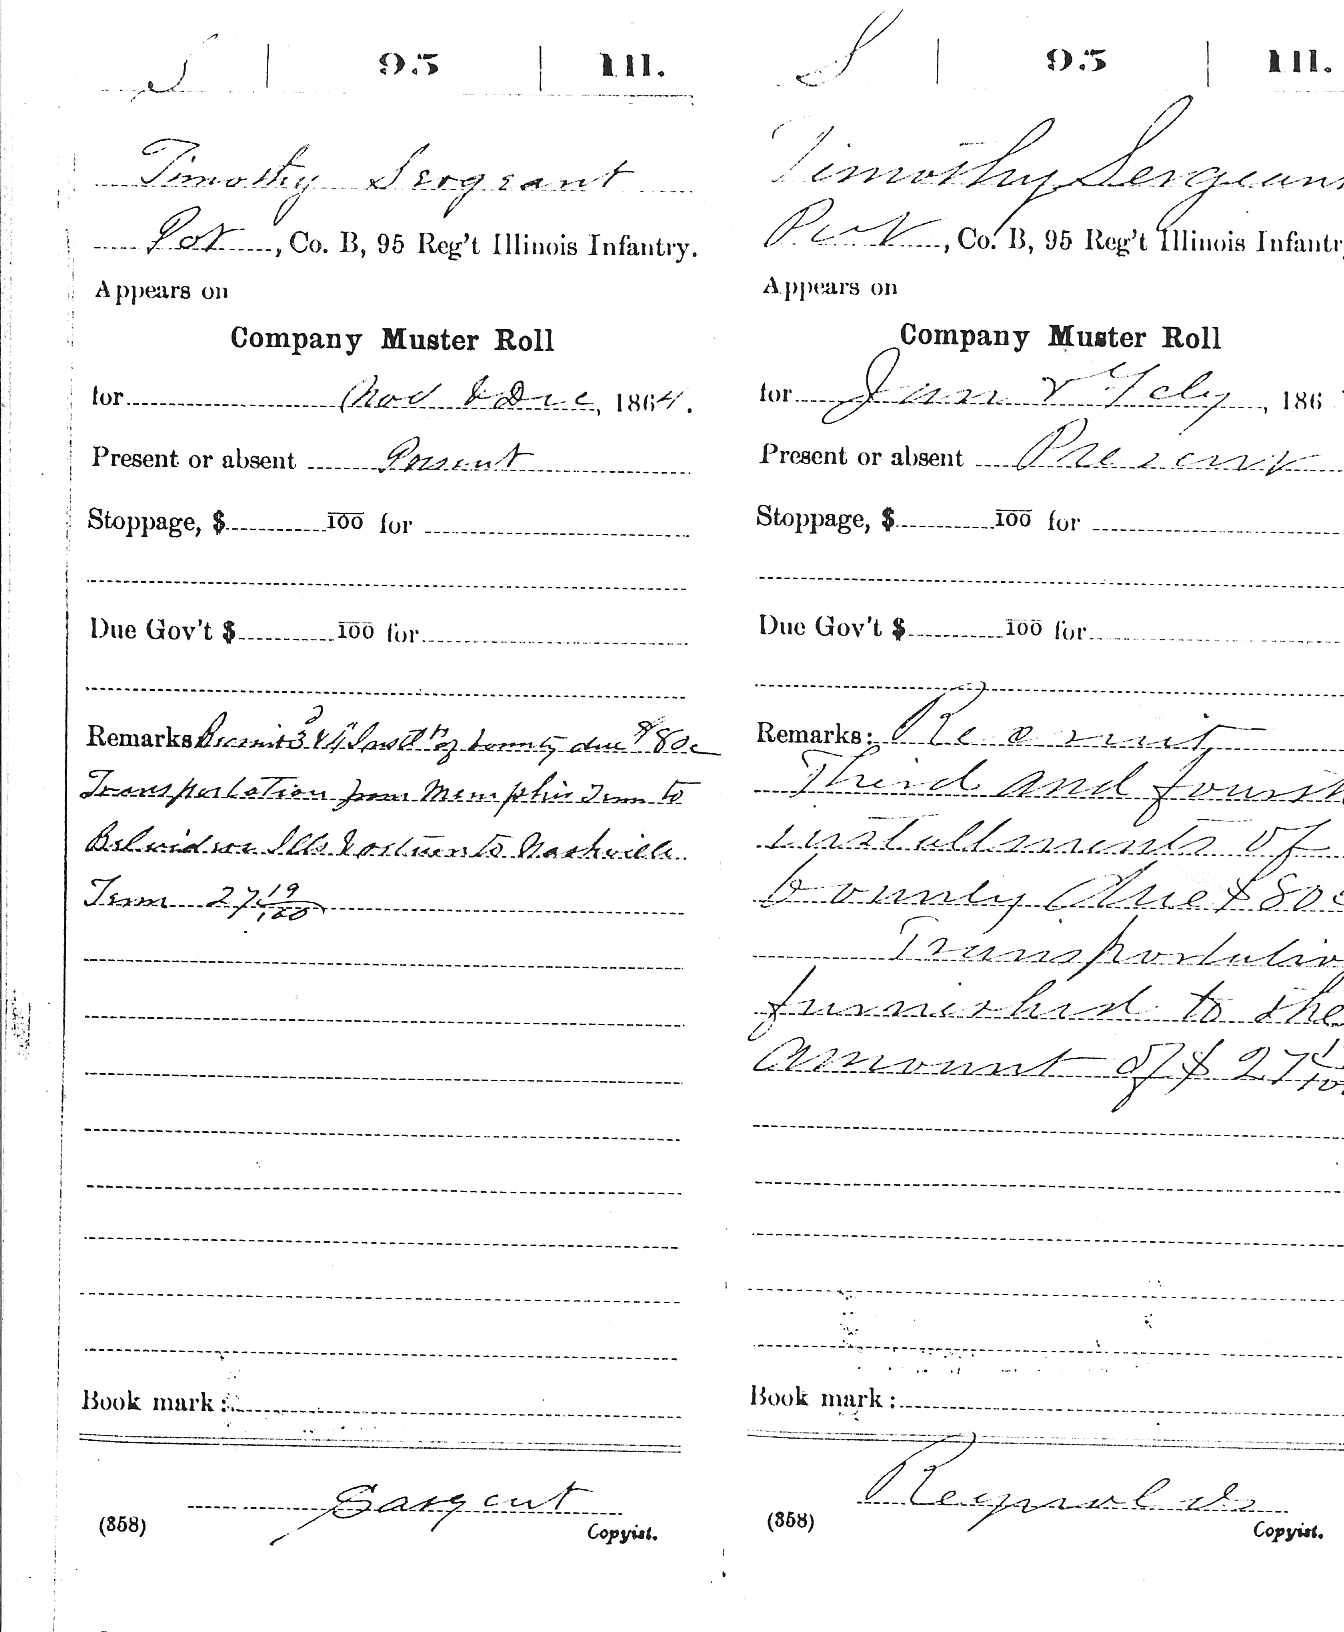 S | 95 | Ill.
Timothy Sergeant
Pvt, Co. B, 95 Reg't Illinois Infantry.
Appears on
Company Muster Roll
for Nov & Dec, 1864.
Present or absent Present
Stoppage, $ 100 for
Due Gov't $ 100 for
Remarks: Recruit 3d & 4th Inst of bounty due $80
Transportation from Memphis Tenn to
Belvidere Ills & return to Nashville
Tenn 27 19/100
Book mark:
Sargent
(358) Copyist.
S | 95 | Ill.
Timothy Sergean
Pvt, Co. B, 95 Reg't Illinois Infantr
Appears on
Company Muster Roll
for Jan & Feby, 186
Present or absent Present
Stoppage, $ 100 for
Due Gov't $ 100 for
Remarks: Recruit
Third and fourth
installments of
bounty due $80
Transportatio
furnished to the
amount of $ 27
Book mark:
Reynolds
(358) Copyist.